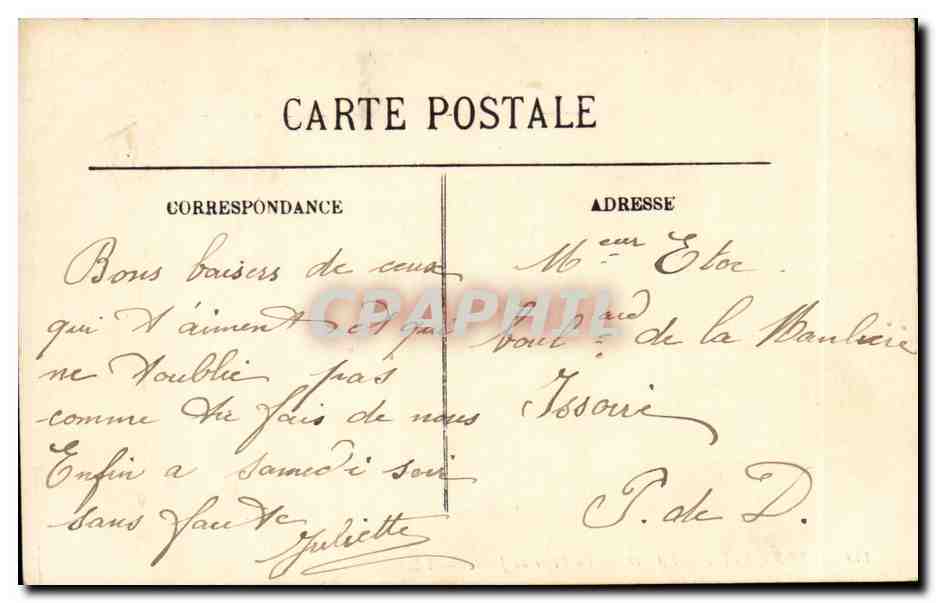 CARTE POSTALE
CORRESPONDANCE
Bons baisers de ceux
qui t'aiment et qui
ne t'oublie pas
comme tu fais de nous
Enfin a samedi soir
sans faute
Juliette
ADRESSE
Meur Etoc
boulard de la Manlière
Issoire
P. de D.
CPAPHIL